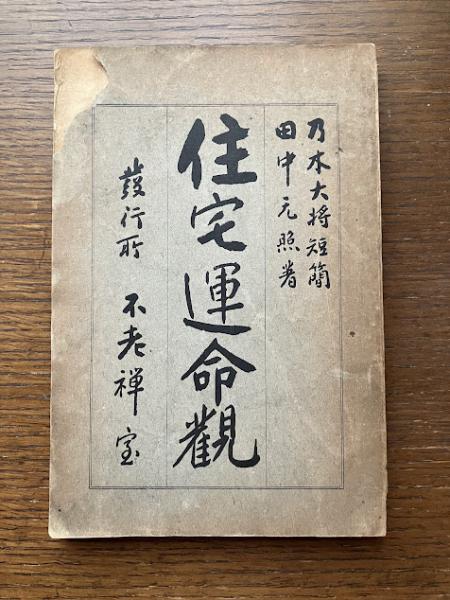 乃木大将短簡
田中元照著
住宅運命觀
發行所 不老禅室